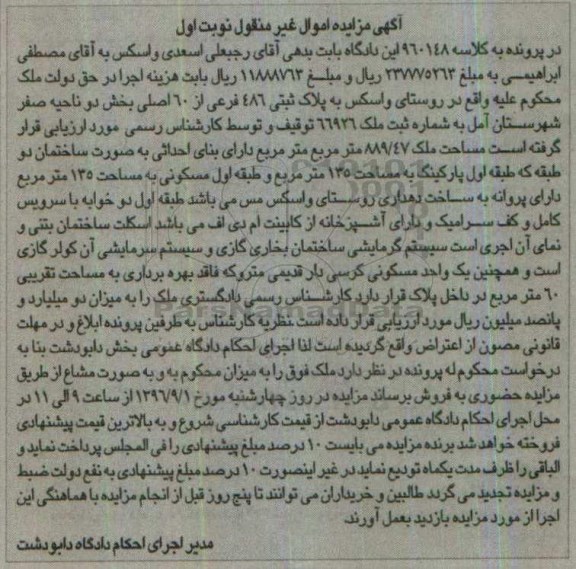 آگهی مزایده اموال غیر منقول نوبت اول
در پرونده به کلاسه ۹۶۰۱۴۸ این دادگاه بابت بدهی آقای رجبعلی اسعدی واسکس به آقای مصطفی
ابراهیمی به مبلغ ۲۳۷۷۷۵۲۶۳ ریال و مبلغ ۱۱۸۸۸۷۶۳ ریال بابت هزینه اجرا در حق دولت ملک
محکوم علیه واقع در روستای واسکس به پلاک ثبتی ۴۸۶ فرعی از ۶۰ اصلی بخش دو ناحیه صفر
شهرستان آمل به شماره ثبت ملک ۶۶۹۲۶ توقیف و توسط کارشناس رسمی مورد ارزیابی قرار
گرفته است مساحت ملک ۸۸۹/۴۷ متر مربع متر مربع دارای بنای احداثی به صورت ساختمان دو
طبقه که طبقه اول پارکینگ به مساحت ۱۳۵ متر مربع و طبقه اول مسکونی به مساحت ۱۳۵ متر مربع
دارای پروانه به ساخت دهداری روستای واسکس مس می باشد طبقه اول دو خوابه با سرویس
کامل و کف سرامیک و دارای آشپزخانه از کابینت ام دی اف می باشد اسکلت ساختمان بتنی و
نمای آن اجری است سیستم گرمایشی ساختمان بخاری گازی و سیستم سرمایشی آن کولر گازی
است و همچنین یک واحد مسکونی کرسی دار قدیمی متروکه فاقد بهره برداری به مساحت تقریبی
۶۰ متر مربع در داخل پلاک قرار دارد کارشناس رسمی دادگستری ملک را به میزان دو میلیارد و
پانصد میلیون ریال مورد ارزیابی قرار داده است نظریه کارشناس به طرفین پرونده ابلاغ و در مهلت
قانونی مصون از اعتراض واقع گردیده است لذا اجرای احکام دادگاه عمومی بخش دابودشت بنا به
درخواست محکوم له پرونده در نظر دارد ملک فوق را به میزان محکوم به و به صورت مشاع از طریق
مزایده حضوری به فروش برساند مزایده در روز چهارشنبه مورخ ۱۳۹۶/۹/۱ از ساعت ۹ الی ۱۱ در
محل اجرای احکام دادگاه عمومی دابودشت از قیمت کارشناسی شروع و به بالاترین قیمت پیشنهادی
فروخته خواهد شد برنده مزایده می بایست ۱۰ درصد مبلغ پیشنهادی را فی المجلس پرداخت نماید و
الباقی را ظرف مدت یکماه تودیع نماید در غیر اینصورت ۱۰ درصد مبلغ پیشنهادی به نفع دولت ضبط
و مزایده تجدید می گردد طالبین و خریداران می توانند تا پنج روز قبل از انجام مزایده با هماهنگی این
اجرا از مورد مزایده بازدید بعمل آورند.
مدیر اجرای احکام دادگاه دابودشت